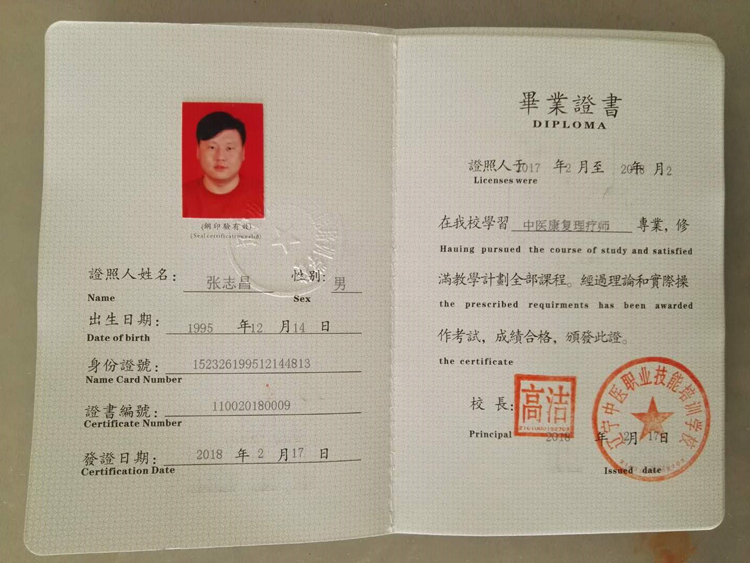 (鋼印驗有效)
證照人姓名： 张志昌 性别： 男
Name Sex
出生日期： 1995 年 12 月 14 日
Date of birth
身份證號： 152326199512144813
Name Card Number
證書編號： 110020180009
Certificate Number
發證日期： 2018 年 2 月 17 日
Certification Date
畢業證書
DIPLOMA
證照人于2017 年2 月至 年 月2
Licenses were
在我校學習 中医康复理疗师 專業，修
Hauing pursued the course of study and satisfied
滿教學計劃全部課程。經過理論和實際操
the prescribed requirments has been awarded
作考試，成績合格，頒發此證。
the certificate
校長： 高洁
Principal 2018 年 2 月 17 日
Issued date
辽宁中医职业技能培训学校